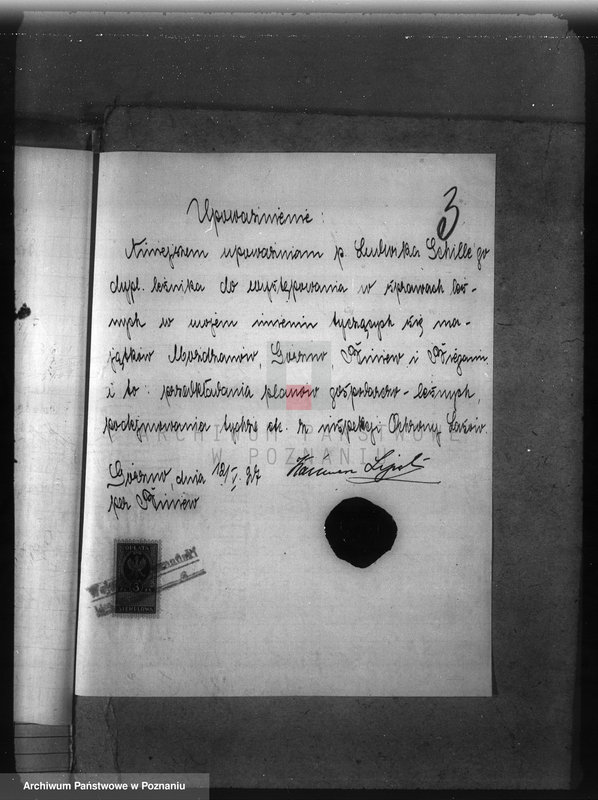 3
Upoważnienie:
Niniejszem upoważniam p. Ludwika Schille go
dypl. leśnika do występowania w sprawach leś-
nych w mojem imieniu tyczących się ma-
jątków Mozdzanów, Górzno i
i to: przedkładania planów gospodarcz-leśnych,
podejmowania tychże etc. w inspekcji Ochrony Lasów.
Górzno, dnia 12/V. 27
per
OPŁATA
3
STEMPLOWA
ARCHIWUM PAŃSTWOWE
W POZNANIU
Archiwum Państwowe w Poznaniu